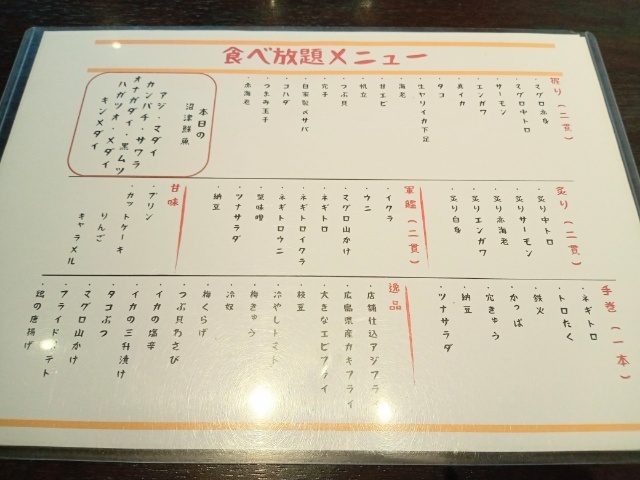 食べ放題メニュー
握り(二貫)
・マグロ赤身
・マグロ中トロ
・サーモン
・エンガワ
・真イカ
・タコ
・生ヤリイカ下足
・海老
・甘エビ
・帆立
・つぶ貝
・穴子
・自家製〆サバ
・コハダ
・つまみ玉子
・赤海老
本日の
沼津鮮魚
アジ・マダイ
カンパチ・サワラ
オナガダイ・黒ムツ
ハガツオ・メダイ
キンメダイ
炙り(二貫)
・炙り中トロ
・炙りサーモン
・炙り赤海老
・炙りエンガワ
・炙り白身
軍艦(二貫)
・イクラ
・ウニ
・マグロ山かけ
・ネギトロ
・ネギトロイクラ
・ネギトロウニ
・蟹味噌
・ツナサラダ
・納豆
甘味
・プリン
・カットケーキ
りんご
キャラメル
手巻(一本)
・ネギトロ
・トロたく
・鉄火
・かっぱ
・穴きゅう
・納豆
・ツナサラダ
逸品
・店舗仕込アジフライ
・広島県産カキフライ
・大きなエビフライ
・枝豆
・冷やしトマト
・梅きゅう
・冷奴
・梅くらげ
・つぶ貝わさび
・イカの塩辛
・イカの三升漬け
・タコぶつ
・マグロ山かけ
・フライドポテト
・鶏の唐揚げ